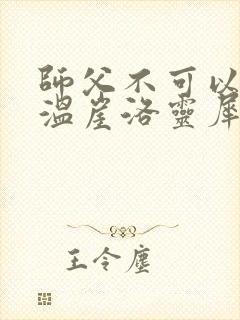 師父不可以
溫崖洛靈犀
王令塵